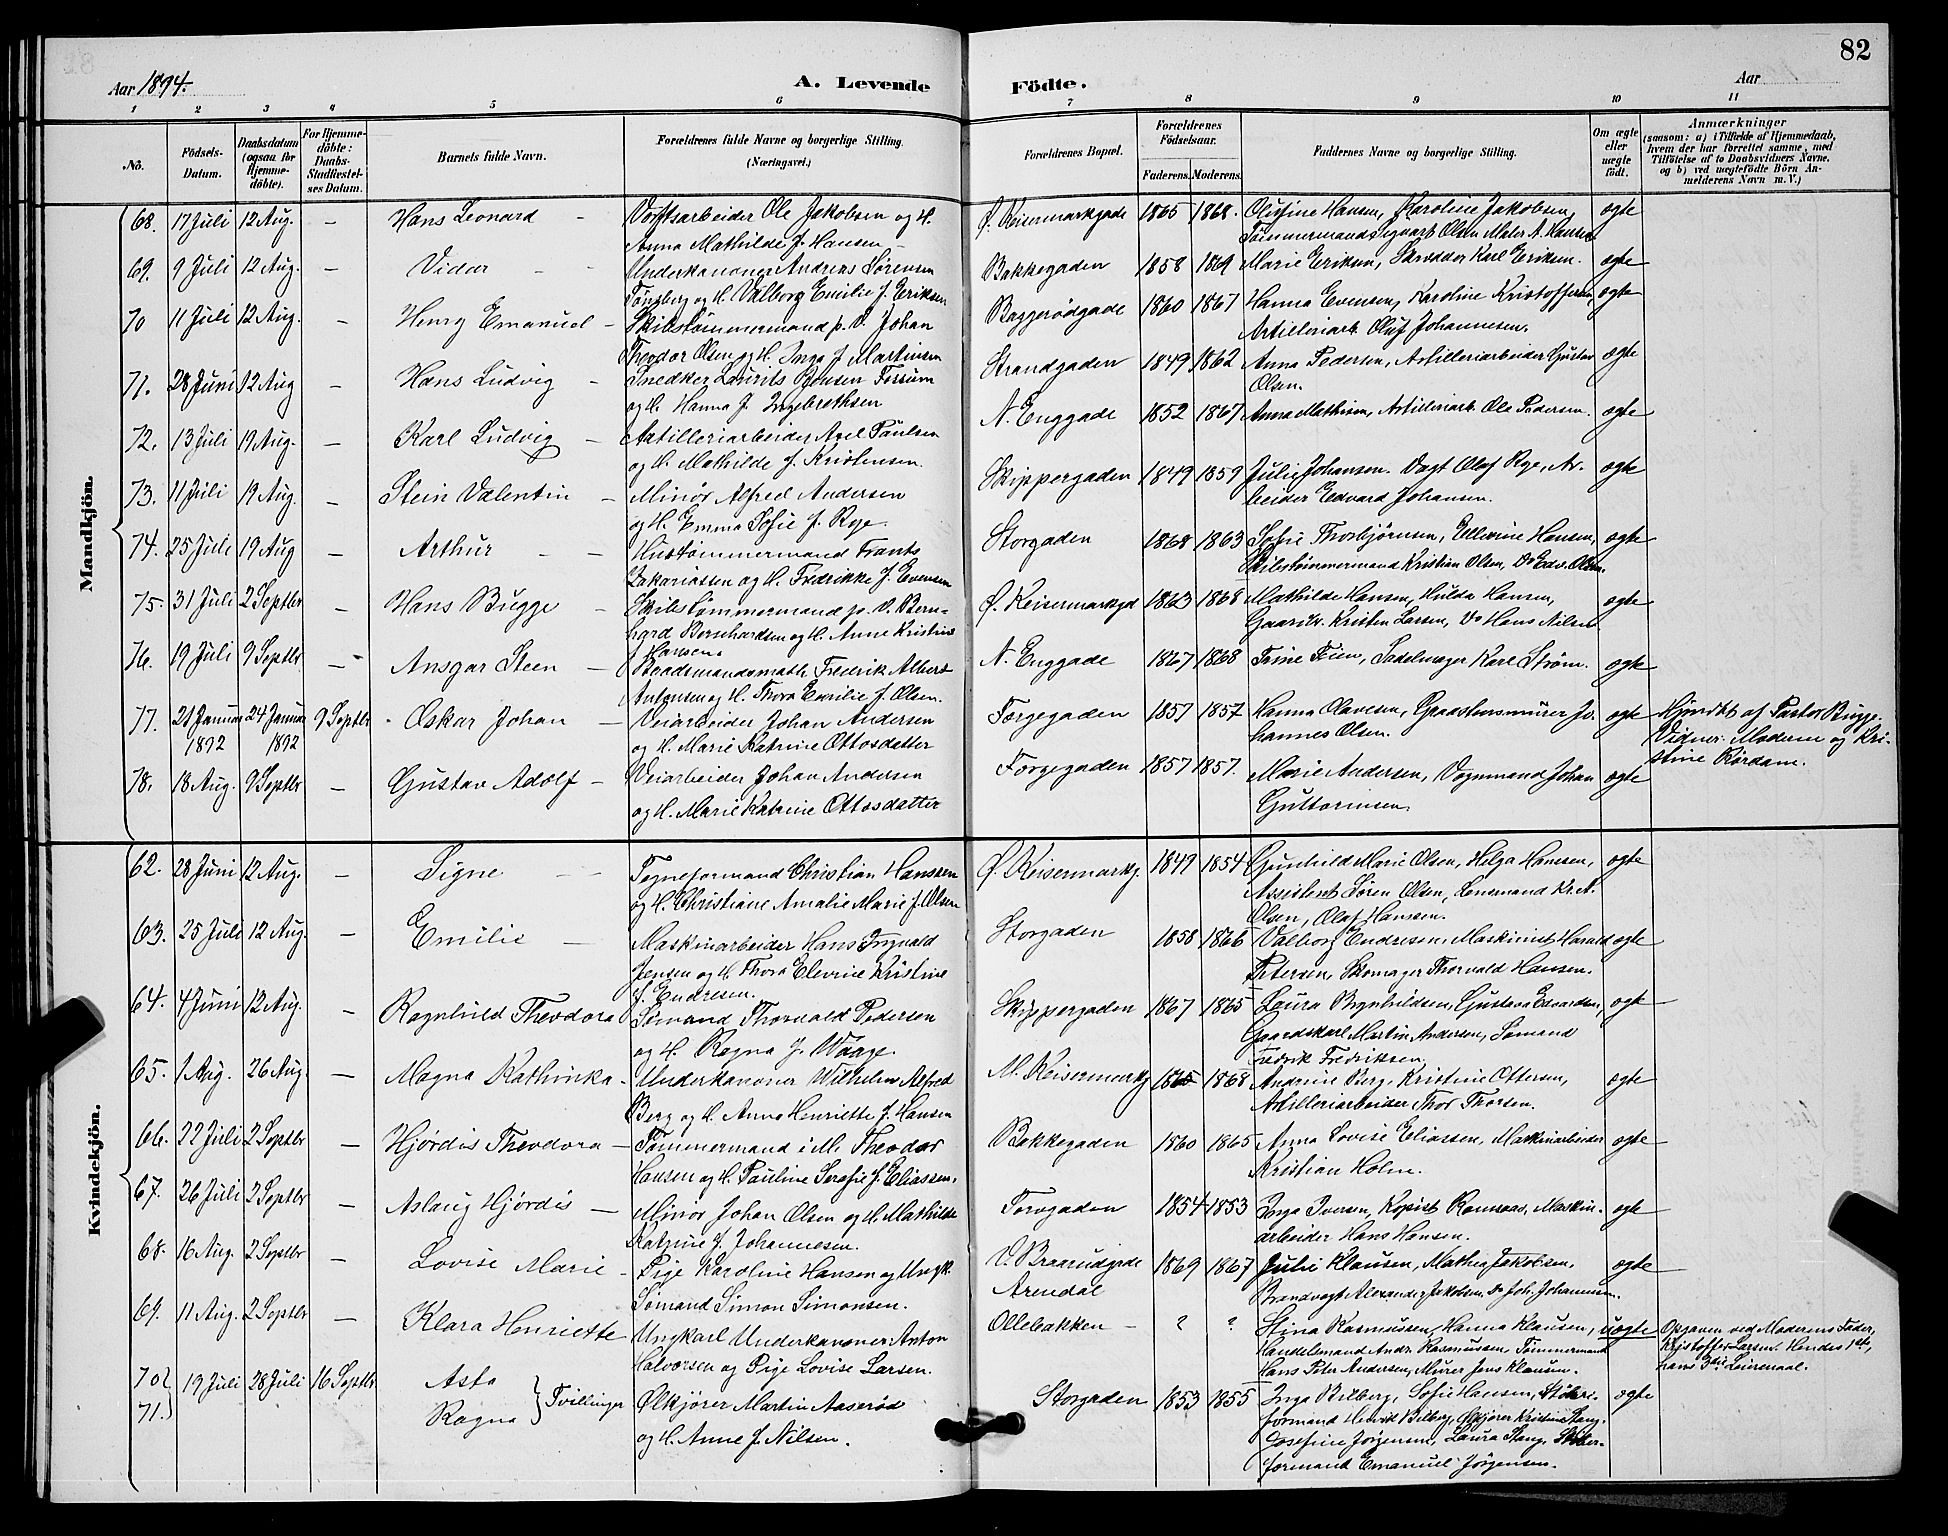 82
Aar 1894.
A. Levende Födte.
Aar
1 2 3 4 5 6 7 8 9 10 11
No. Födsels-Datum. Daabsdatum (ogsaa for Hjemmedöbte). For Hjemmedöbte: Daabs-Stadfæstelses Datum. Barnets fulde Navn. Forældrenes fulde Navne og borgerlige Stilling. (Næringsvei.) Forældrenes Bopæl. Forældrenes Födselsaar. Faderens. Moderens. Faddernes Navne og borgerlige Stilling. Om ægte eller uægte født. Anmærkninger (saasom: a) i Tilfælde af Hjemmedaab, hvem der har forrettet samme, med Tilföielse af to Daabsvidners Navne, og b) ved uægtefödte Börn Anmelderens Navn m. V.)
Mandkjön.
68. 17 Juli 12 Aug. – Hans Leonard – Værftsarbeider Ole Jakobsen og H. Ø. Keisermarkgade 1865 1868. Olufine Hansen, Karoline Jakobsen, ægte
Anna Mathilde f. Hansen – Tømmermand Sigvart Olsen Maler A. Hansen
69. 9 Juli 12 Aug. – Vidar – – Underkanoner Andreas Sørensen Bakkegaden 1858 1869 Marie Eriksen, Skrædder Karl Eriksen. ægte
Tønsberg og H. Valborg Emilie f. Eriksen
70 11 Juli 12 Aug. – Henry Emanuel – Skibstømmermand p. V. Johan Baggerødgade 1860 1867 Hanna Evensen, Karoline Kristoffersen, ægte
Theodor Olsen og H. Inga f. Martinsen Artilleriarb. Oluf Johannesen.
71. 28 Juni 12 Aug – Hans Ludvig – Snedker Laurits Hansen Forsum Strandgaden 1849 1862 Anna Pedersen, Artilleriarbeider Gustav ægte
og H. Hanna f. Ingebrethsen Olsen.
72. 13 Juli 19 Aug. – Karl Ludvig – Artilleriarbeider Axel Paulsen N. Enggade 1852 1867 Anna Mathisen, Artilleriarb. Ole Pedersen. ægte
og H. Mathilde f. Kristensen.
73. 11 Juli 19 Aug. – Stein Valentin – Minør Alfred Andersen Skippergaden 1849 1859 Julie Johansen. Vagt Olaf Rye, Ar- ægte
og H. Emma Sofie f. Rye. beider Edvard Johansen.
74. 25 Juli 19 Aug – Arthur – – Hustømmermand Frants Storgaden 1868 1863 Sofie Thorbjørnsen, Ellevine Hansen, ægte
Zakariassen og H. Fredrikke f. Evensen Skibstømmermand Kristian Olsen, Do Edv. Olsen.
75. 31 Juli 2 Septbr – Hans Bugge – Skibstømmermand p. V. Bern- Ø. Keisermarkgd 1863 1868 Mathilde Hansen, Hulda Hansen, ægte
hard Bernhardsen og H. Anne Kristine Gaardbr. Kristen Larsen, Do Hans Nilsen
f. Hansen.
76. 19 Juli 9 Septbr – Ansgar Steen – Baadsmandsmath. Frederik Albert N. Enggade 1867 1868 Trine Feien, Sadelmager Karl Strøm. ægte
Antonsen og H. Thora Emilie f. Olsen.
77. 21 Januar 24 Januar 9 Septbr - Oskar Johan – Veiarbeider Johan Andersen Færgegaden 1857 1857 Hanna Olavesen, Graastensmurer Jo- ægte Hjemdbt af Pastor Bugge.
1892 1892 og H. Marie Katrine Ottosdatter hannes Olsen. Vidner: Moderen og Kri-
stine Rørdam.
78. 18 Aug. 9 Septbr – Gustav Adolf – Veiarbeider Johan Andersen Færgegaden 1857 1857. Marie Andersen, Vognmand Johan ægte
og H. Marie Katrine Ottosdatter Guttormsen.
Kvindekjön.
62. 28 Juni 12 Aug. – Signe – – Tegneformand Christian Hanssen Ø. Keisermarkg. 1849 1854 Gunhild Marie Olsen, Helga Hanssen, ægte
og H. Christiane Amalie Marie f. Olsen Assistent Søren Olsen, Lensmand Kr. A.
Olsen, Olaf Hanssen.
63. 25 Juli 12 Aug. – Emilie – Maskinarbeider Hans Trygvald Storgaden 1858 1866 Valborg Endresen, Maskinist Harald ægte
Jensen og H. Thora Elevine Kristine Petersen, Skomager Thorvald Hansen.
f. Endresen.
64. 4 Juni 12 Aug. – Ragnhild Theodora Sømand Thorvald Pedersen Skippergaden 1867 1865 Laura Brynhildsen, Gustava Edvardsen, ægte
og H. Ragna f. Waage. Gaardskarl Martin Andersen, Sømand
Fredrik Fredriksen.
65. 1 Aug. 26 Aug. – Magna Kathinka – Underkanoner Wilhelm Alfred M. Keisermarkg 1865 1868 Andrine Berg, Kristine Ottersen, ægte
Berg og H. Anna Henriette f. Hansen Artilleriarbeider Thor Thorsen.
66. 22 Juli 2 Septbr – Hjørdis Theodora – Tømmermand i M. Theodor Bakkegaden 1860 1865 Anna Lovise Eliassen, Maskinarbeider ægte
Hansen og H. Pauline Serafie f. Eliassen. Kristian Holm.
67. 26 Juli 2 Septbr – Aslaug Hjørdis – Minør Johan Olsen og H. Mathilde Torvgaden 1854 1853 Inga Iversen, Kopist Ramsaas, Maskin- ægte
Katrine f. Johannesen. arbeider Hans Hansen.
68. 16 Aug. 2 Septbr – Lovise Marie – Pige Karoline Hansen og Ungk. V. Braarudgade 1869 1867 Julie Klausen, Mathea Jakobsen, ægte
Sømand Simon Simonsen. Arendal Brandvagt Alexander Jakobsen, Do Joh. Johannesen.
69. 11 Aug. 2 Septbr – Klara Henriette Ungkarl Underkanoner Anton Ollebakken – ? ? Stina Rasmussen, Hanna Klausen, uægte Opgaven ved Moderens Fader,
Halvorsen og Pige Lovise Larsen. Handelsmand Andr. Rasmussen Tømmermand Kristoffer Larsen. Hendes 1ste,
Hans Peter Andersen, Murer Jens Klausen. hans 3die Leiermaal.
70 71. 19 Juli 28 Juli 16 Septbr Asta Ragna } Tvillinger Ølkjører Martin Aaserød Storgaden 1853 1855 Inga Bilberg, Sofie Hansen, ægte
og H. Anne f. Nilsen. formand Henrik Bilberg, Ølkjører Kristine Stang.
Josefine Jørgensen, Laura Stang,
formand Emanuel Jørgensen.